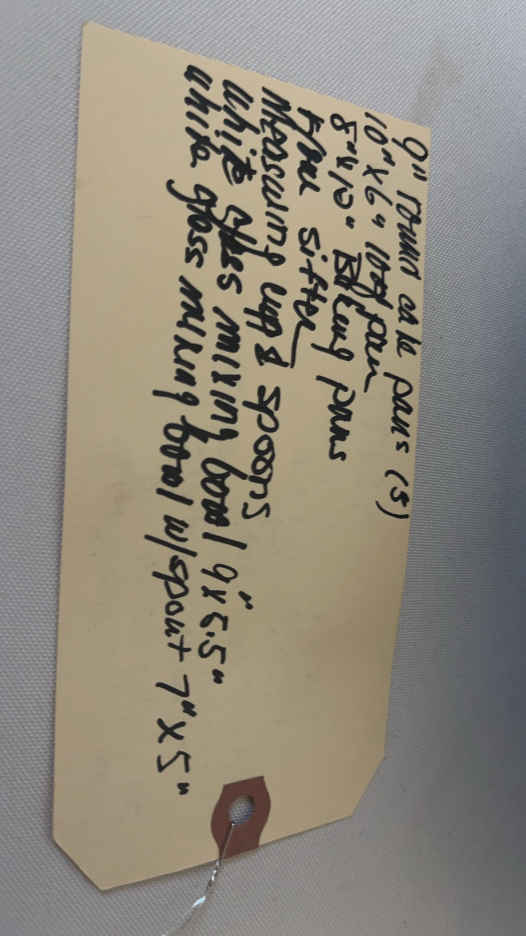 9" round cake pans (3)
10" x 6" loaf pan
8" x 10" Baking pans
Flour sifter
Measuring cup & spoons
White glass mixing bowl 9" x 5.5"
White glass mixing bowl w/spout 7" x 5"